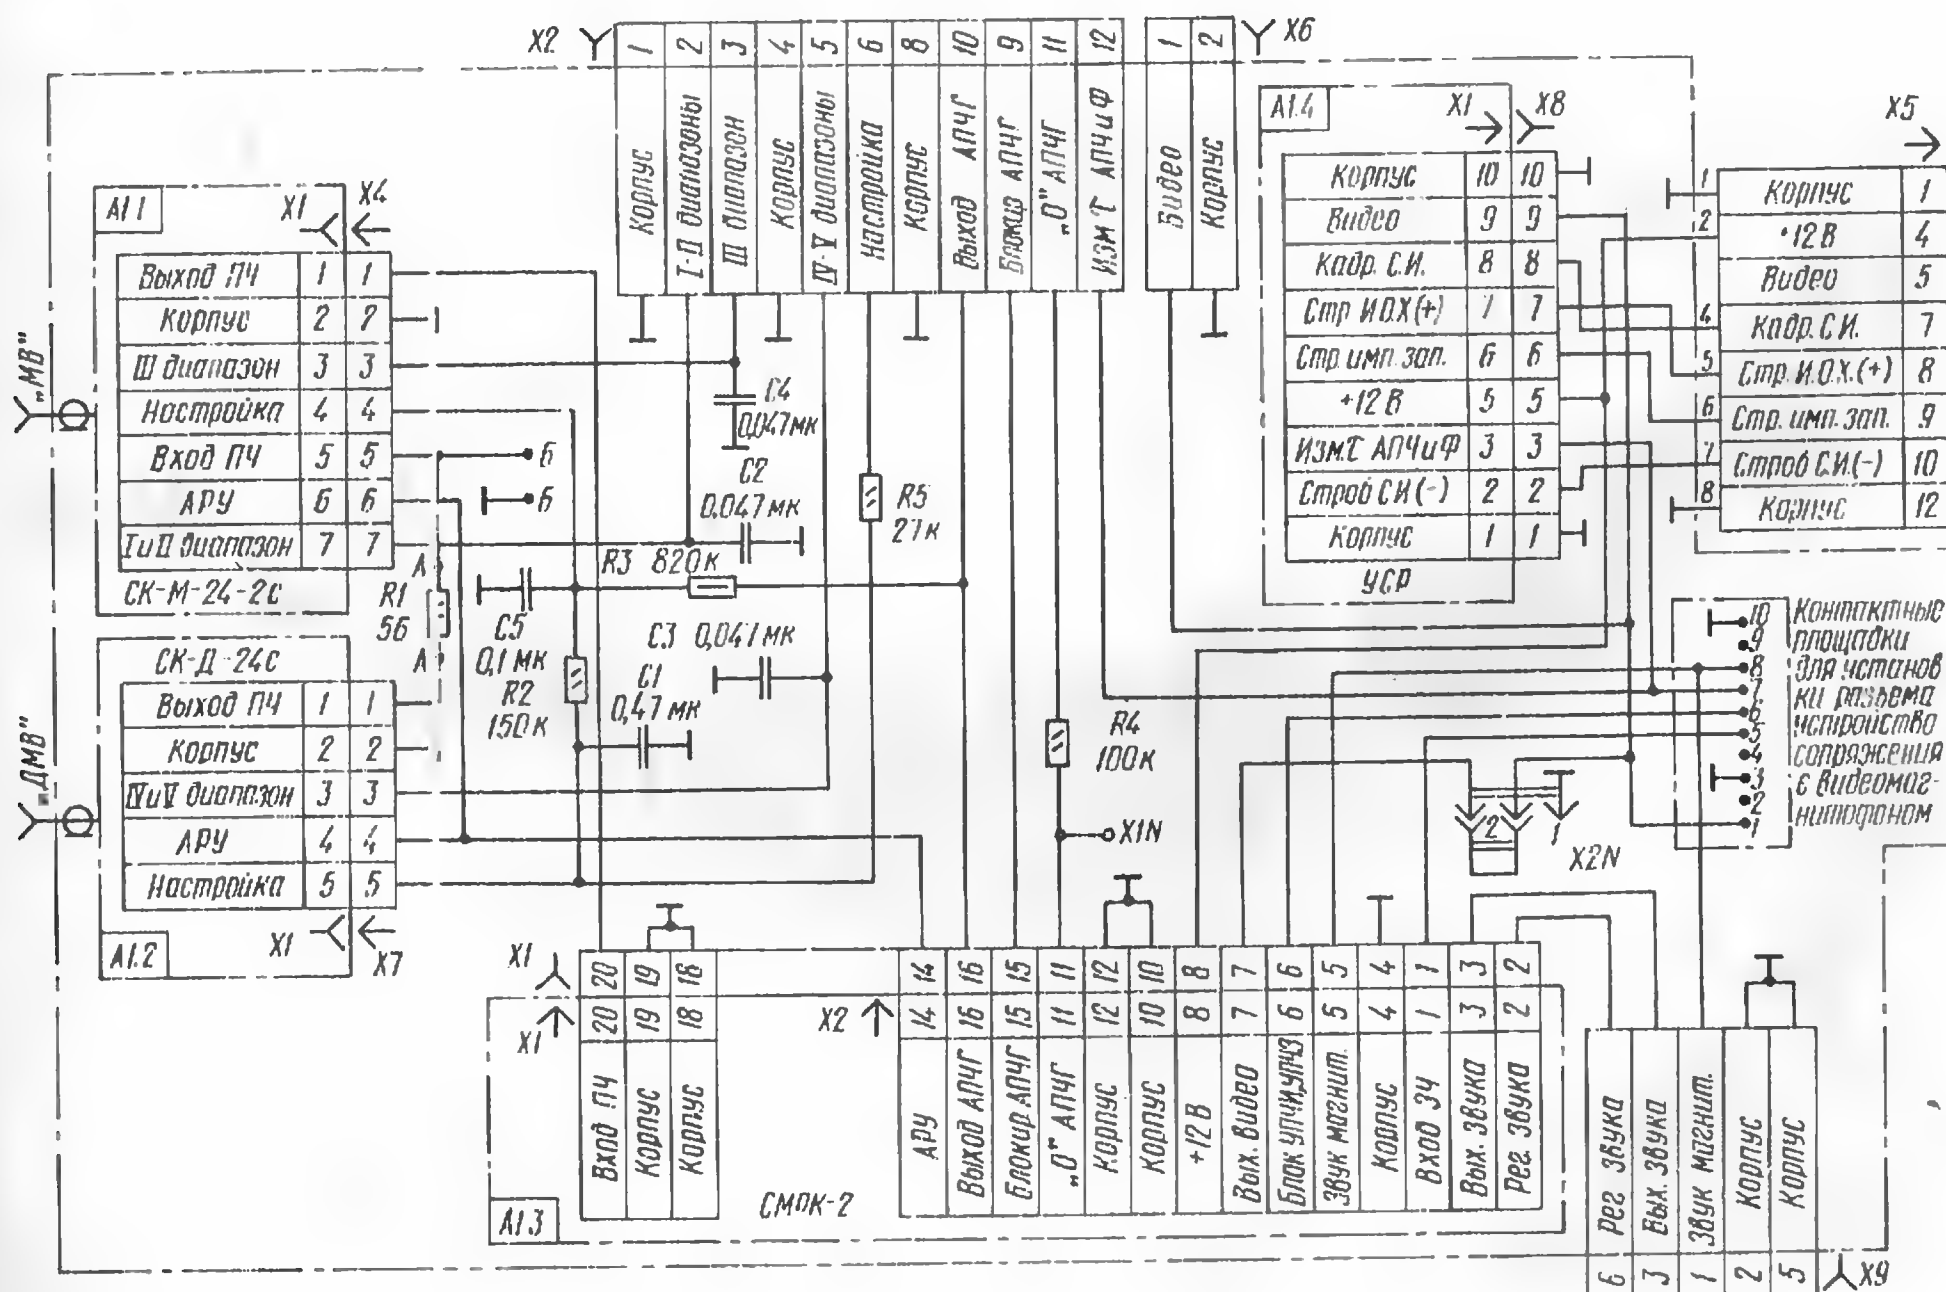 X2
1 2 3 4 5 6 8 10 9 11 12
Корпус
I-II диапазоны
III диапазон
Корпус
IV-V диапазоны
Настройка
Корпус
Выход АПЧГ
Блокир АПЧГ
„О" АПЧГ
Изм τ АПЧиФ
1 2
X6
Видео
Корпус
А1.1
X1
X4
Выход ПЧ 1 1
Корпус 2 2
III диапазон 3 3
Настройка 4 4
Вход ПЧ 5 5
АРУ 6 6
I и II диапазон 7 7
СК-М-24-2с
„МВ"
СК-Д-24с
Выход ПЧ 1 1
Корпус 2 2
IV и V диапазон 3 3
АРУ 4 4
Настройка 5 5
А1.2
X1
X7
„ДМВ"
Б
Б
А
R1
56
А
C4
0,047 мк
C2
0,047 мк
R5
27 к
R3 820 к
C5
0,1 мк
R2
150 к
C3 0,047 мк
C1
0,47 мк
R4
100 к
X1N
А1.4
X1
X8
Корпус 10 10
Видео 9 9
Кадр. С.И. 8 8
Стр И.О.Х (+) 7 7
Стр. имп. зап. 6 6
+12 В 5 5
Изм. τ АПЧиФ 3 3
Строб СИ (-) 2 2
Корпус 1 1
УСР
X5
1 Корпус 1
2 +12 В 4
Видео 5
4 Кадр. С.И. 7
5 Стр. И.О.Х. (+) 8
6 Стр. имп. зап. 9
7 Строб С.И. (-) 10
8 Корпус 12
10
9
8
7
6
5
4
3
2
1
Контактные
площадки
для установ
ки разъема
устройство
сопряжения
с видеомаг-
нитофоном
2
1
X2N
X1
20 19 18
14 16 15 11 12 10 8 7 6 5 4 1 3 2
X1
20 19 18
X2
14 16 15 11 12 10 8 7 6 5 4 1 3 2
Вход ПЧ
Корпус
Корпус
АРУ
Выход АПЧГ
Блокир АПЧГ
„О" АПЧГ
Корпус
Корпус
+12 В
Вых. Видео
Блок УПЧИ, УПЧЗ
Звук магнит.
Корпус
Вход ЗЧ
Вых. Звука
Рег. Звука
А1.3
СМРК-2
Рег Звука
Вых. Звука
Звук магнит.
Корпус
Корпус
6 3 1 2 5
X9